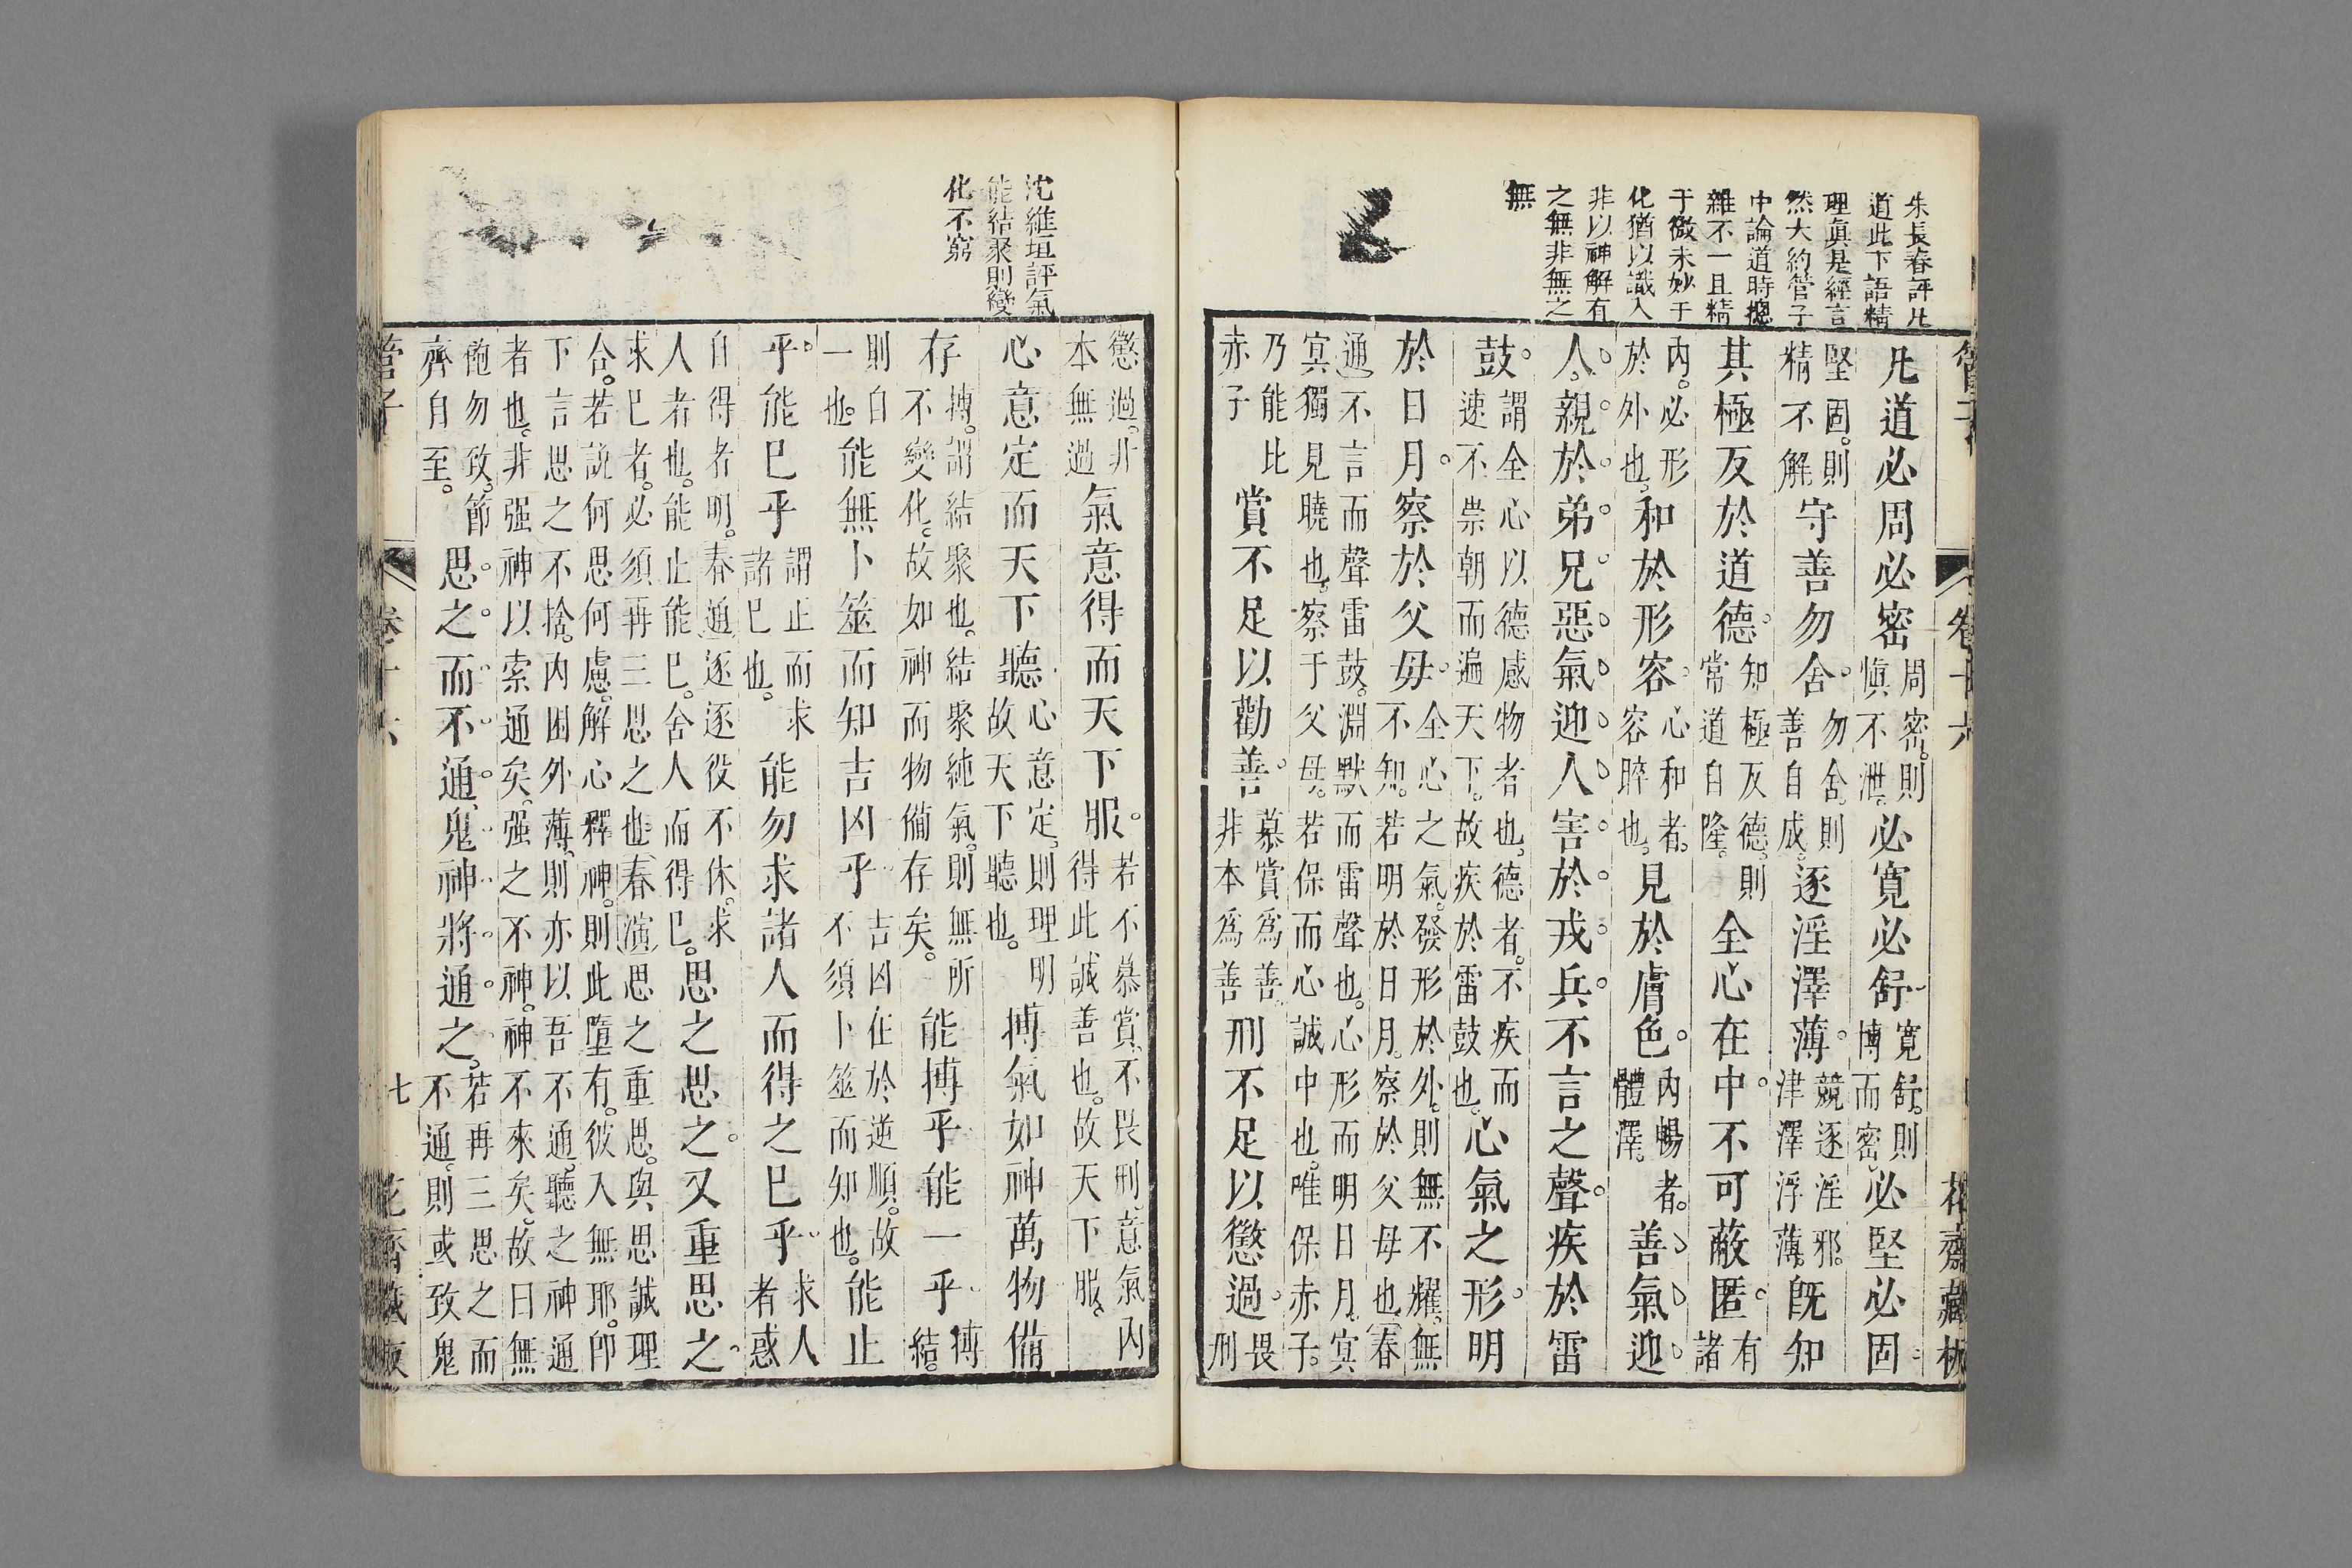 朱長春評凡
道此下語精
理眞是經言
然大約管子
中論道時摠
雜不一且精
于微未妙于
化猶以識入
非以神解有
之無非無之
無
管子 卷十六 花齋藏板
凡道必周必密周密。則愼不泄。必寬必舒寬舒。則博而密。必堅必固
堅固。則精不解守善勿舍。勿舍。則善自成。逐淫澤薄。競逐淫邪。津澤浮薄。旣知
其極反於道德。知極反德。則常道自隆。全心在中。不可蔽匿。有諸
內。必形於外也。和於形容。心和者。容睟也。見於膚色。內暢者。體澤。善氣迎
人。親於弟兄。惡氣迎人。害於戎兵。不言之聲。疾於雷
鼓。謂全心以德感物者也。德者。不疾而速不祟朝而遍天下。故疾於雷鼓也。心氣之形。明
於日月。察於父母。全心之氣。發形於外。則無不耀。無不知。若明於日月。察於父母也。春
通不言而聲雷鼓。淵默而雷聲也。心形而明日月。冥冥獨見曉也。察于父母。若保而心誠中也。唯保赤子。
乃能比赤子賞不足以勸善。慕賞爲善。非本爲善刑不足以懲過。畏刑
沈維垣評氣
能結聚則變
化不窮
懲過。非本無過氣意得而天下服。若不慕賞。不畏刑。意氣內得此誠善也。故天下服。
心意定而天下聽心意定。則理明故天下聽也。搏氣如神萬物備
存搏。謂結聚也。結聚純氣。則無所不變化。故如神而物備存矣。能搏乎能一乎。搏結。
則自一也。能無卜筮而知吉凶乎吉凶在於逆順。故不須卜筮而知也。能止
乎。能巳乎謂止而求諸巳也。能勿求諸人而得之巳乎。求人者惑
自得者明。春通逐逐役不休。求人者也。能止能巳。舍人而得巳。思之思之。又重思之。
求巳者。必須再三思之也春演思之重思。與思誠理合。若說何思何慮。解心釋神。則此墮有。彼入無耶。卽
下言思之不捨。內困外薄。則亦以吾不通。聽之神通者也。非强神以索通矣。强之不神。神不來矣。故曰無
飽勿致。節齊自至。思之。而不通。鬼神將通之。若再三思之而不通。則或致鬼
管子 卷十六 七 花齋藏板